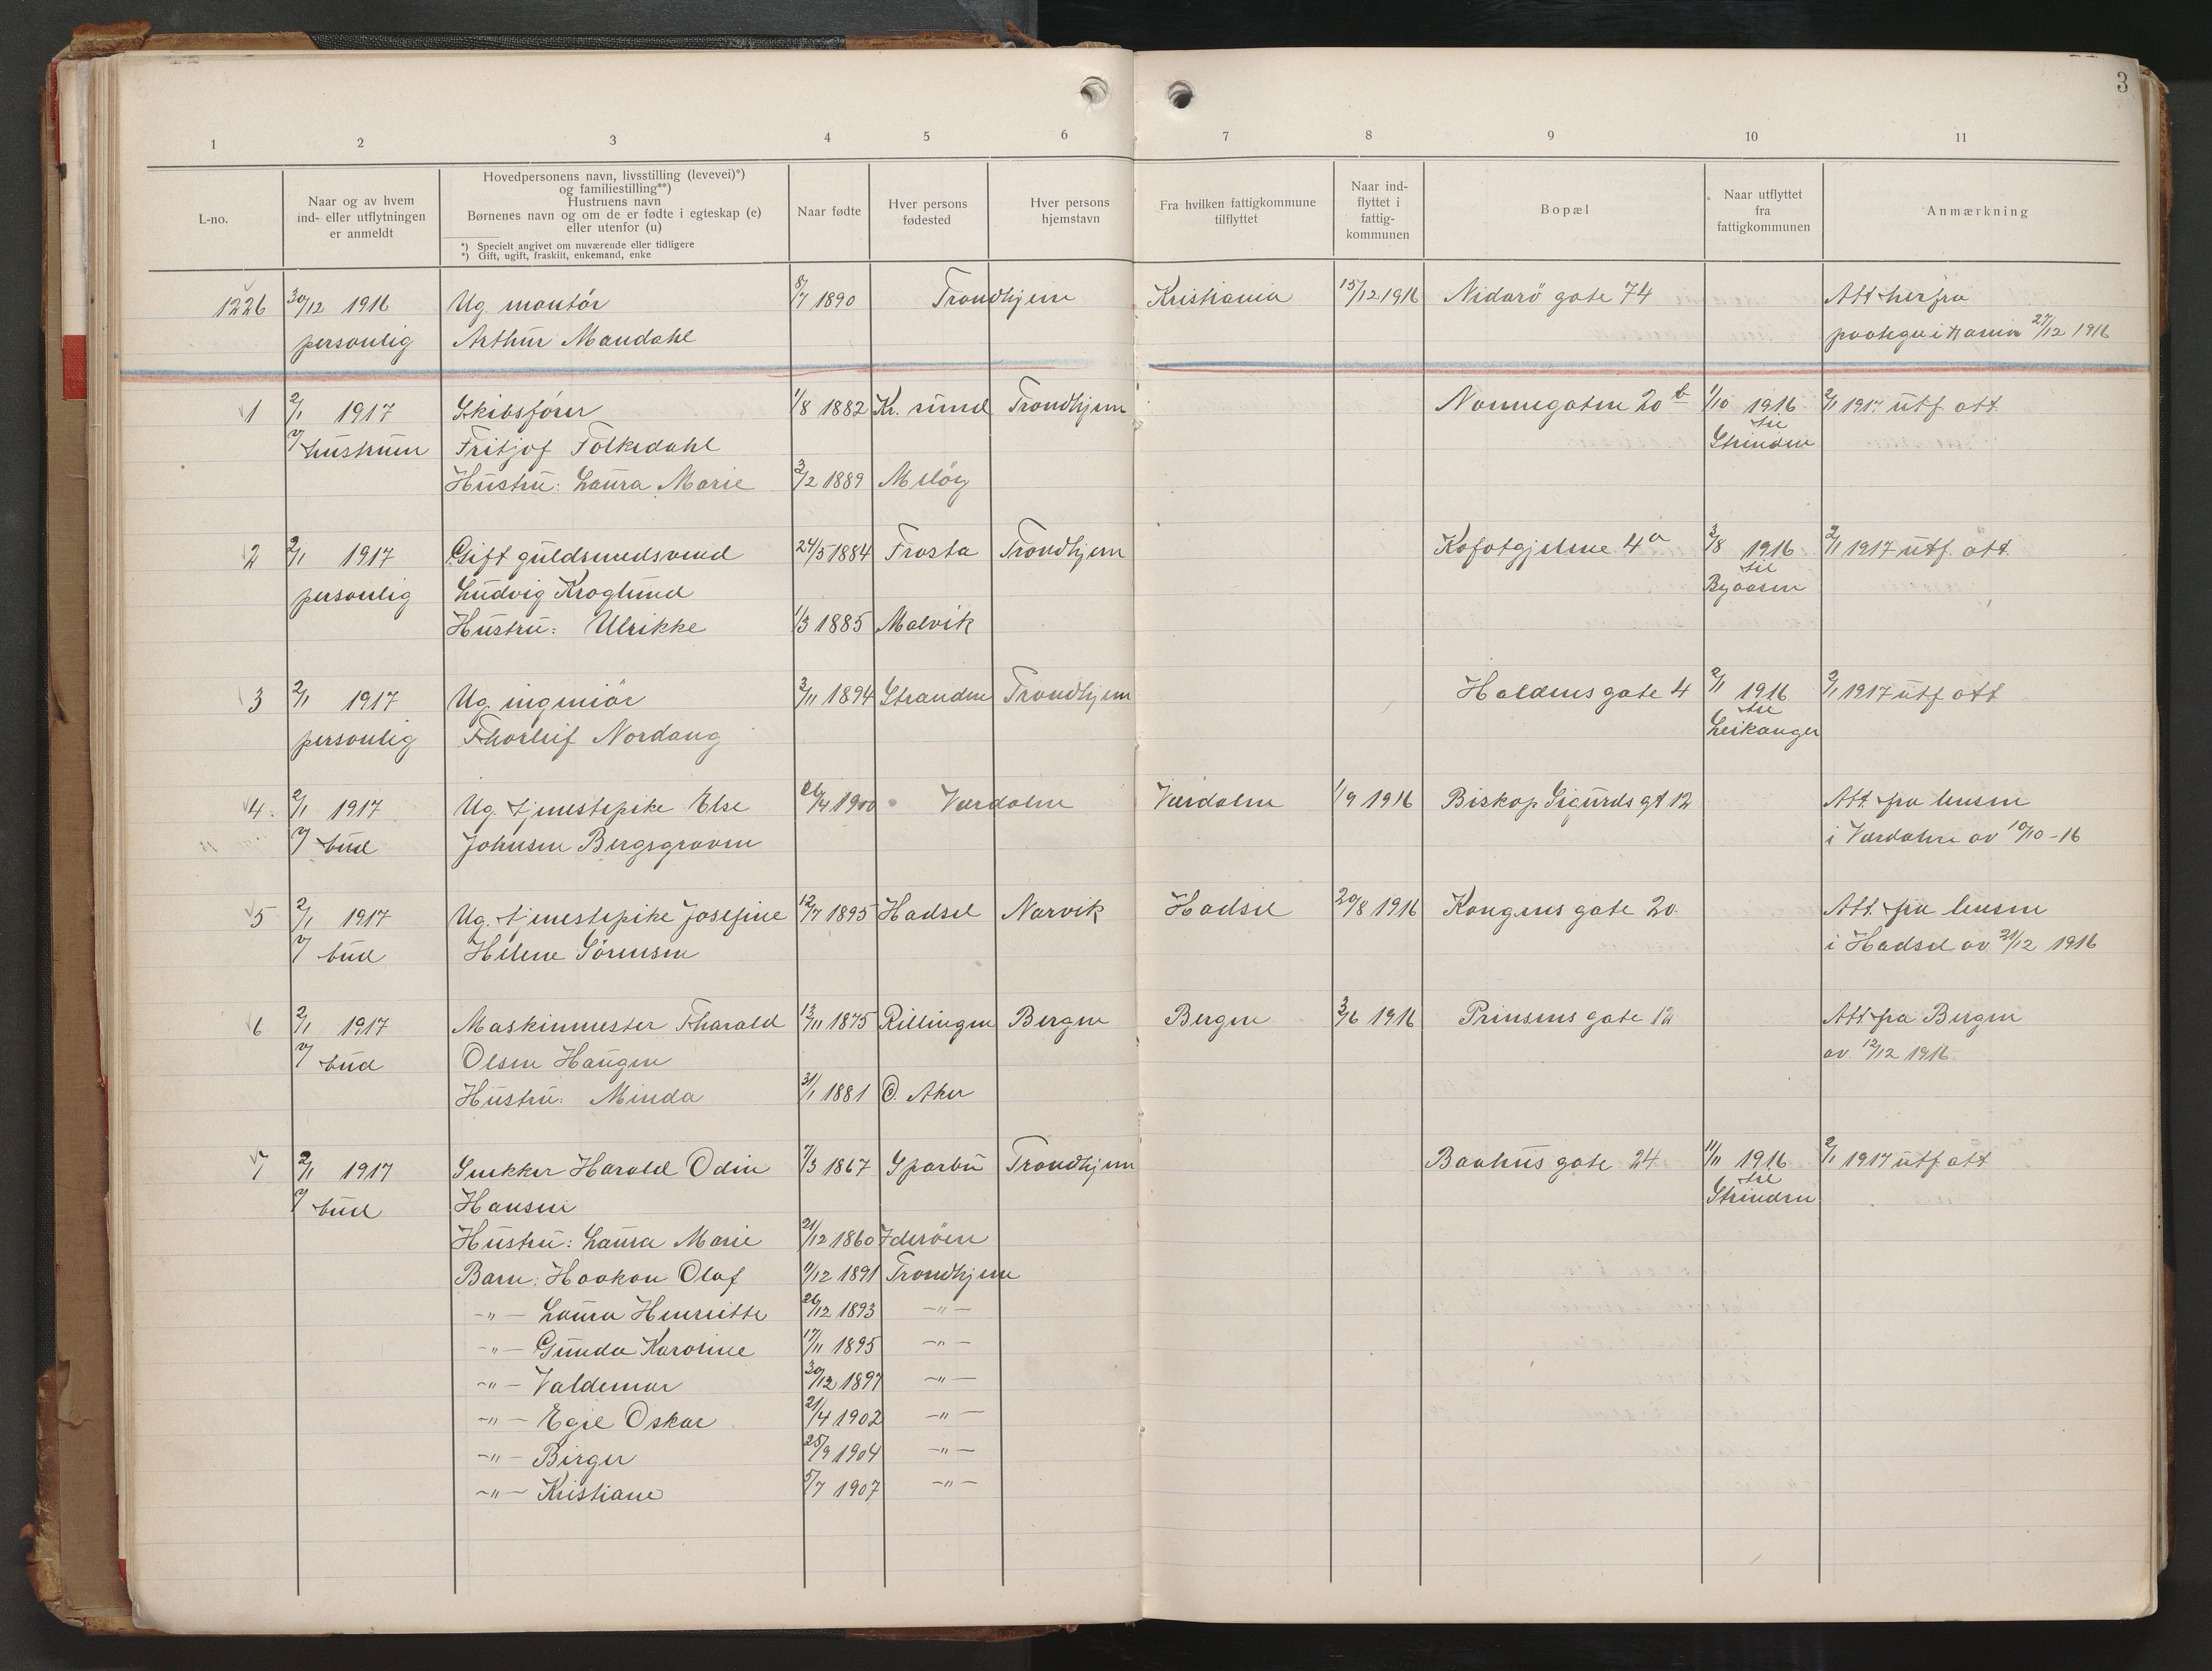 3
1 2 3 4 5 6 7 8 9 10 11
L-no.
Naar og av hvem
ind- eller utflytningen
er anmeldt
Hovedpersonens navn, livsstilling (levevei)*)
og familiestilling**)
Hustruens navn
Børnenes navn og om de er fødte i egteskap (e)
eller utenfor (u)
*) Specielt angivet om nuværende eller tidligere
*) Gift, ugift, fraskilt, enkemand, enke
Naar fødte
Hver persons
fødested
Hver persons
hjemstavn
Fra hvilken fattigkommune
tilflyttet
Naar ind-
flyttet i
fattig-
kommunen
Bopæl
Naar utflyttet
fra
fattigkommunen
Anmærkning
1226 30/12 1916 Ug. montör 8/7 1890 Trondhjem Kristiania 15/12 1916 Nidarö gate 74 Att. herfra
personlig Arthur Mandahl 27/12 1916
1 2/1 1917 Skibsförer 1/8 1882 Kr. sund Trondhjem Nonnegaten 20 b 1/10 1916 2/1 1917 utf. att.
v/ hustruen Fritjof Folkedahl til Strinden
Hustru: Laura Marie 3/2 1889
2 2/1 1917 Gift guldsmedsvend 24/5 1884 Frosta Trondhjem Kofotgjelene 4 a 3/8 1916 2/1 1917 utf. att.
personlig Ludvig Kroglund til Byaasen
Hustru: Ulrikke 1/3 1885 Malvik
3 2/1 1917 Ug. ingeniör 3/11 1894 Stranden Trondhjem Haldens gate 4 2/1 1916 2/1 1917 utf. att.
personlig Thorleif Nordang til Leikanger
4. 2/1 1917 Ug. tjenestepike Else 26/4 1900 Værdalen Værdalen 1/9 1916 Biskop Sigurds gt 12 Att. fra lensm
v/ bud Johnsen Bergsgraven i Værdalen av 10/10-16
5 2/1 1917 Ug. tjenestepike Josefine 12/7 1895 Hadsel Narvik Hadsel 20/8 1916 Kongens gate 20 Att. fra lensm
v/ bud Helene Sörensen i Hadsel av 21/12 1916
6 2/1 1917 Maskinmester Tharald 13/11 1875 Rillingen Bergen Bergen 3/6 1916 Prinsens gate 12 Att. fra Bergen
v/ bud Olsen Haugen av 12/12 1916
Hustru: Minda 31/1 1881 Ö. Aker
7 2/1 1917 Snekker Harald Odin 7/3 1867 Sparbu Trondhjem Baahus gate 24 11/11 1916 2/1 1917 utf. att
v/ bud Hansen til Strinden
Hustru: Laura Marie 21/12 1860 Inderöen
Barn: Haakon Olaf 9/12 1891 Trondhjem
-"- Laura Henriette 26/12 1893 -"-
-"- Gunda Karoline 17/11 1895 -"-
-"- Valdemar 30/12 1897 -"-
-"- Egil Oskar 21/4 1902 -"-
-"- Birger 25/9 1904 -"-
-"- Kristiane 5/7 1907 -"-